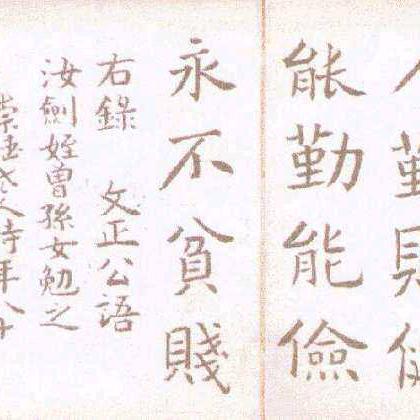 人勤則健
能勤能儉
永不貧賤
右錄 文正公語
汝劍姪曾孫女勉之
時年八十